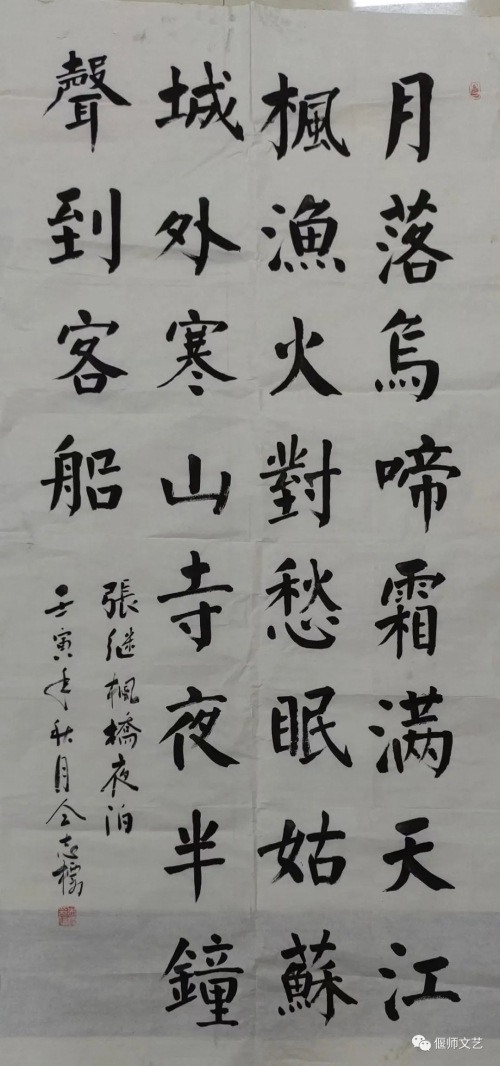 月落烏啼霜满天江
楓漁火對愁眠姑蘇
城外寒山寺夜半鐘
聲到客船
張继枫橋夜泊
壬寅年秋月仝志
偃师文艺